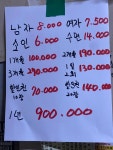 남자 8.000 여자 7.500
소인 6.000 수면 14.000
1개월 100.000 2개월 190.000
3개월 280.000 1일 2회 130.000
할인권 10장 70.000 할인권 20장 140.000
1년 900.000